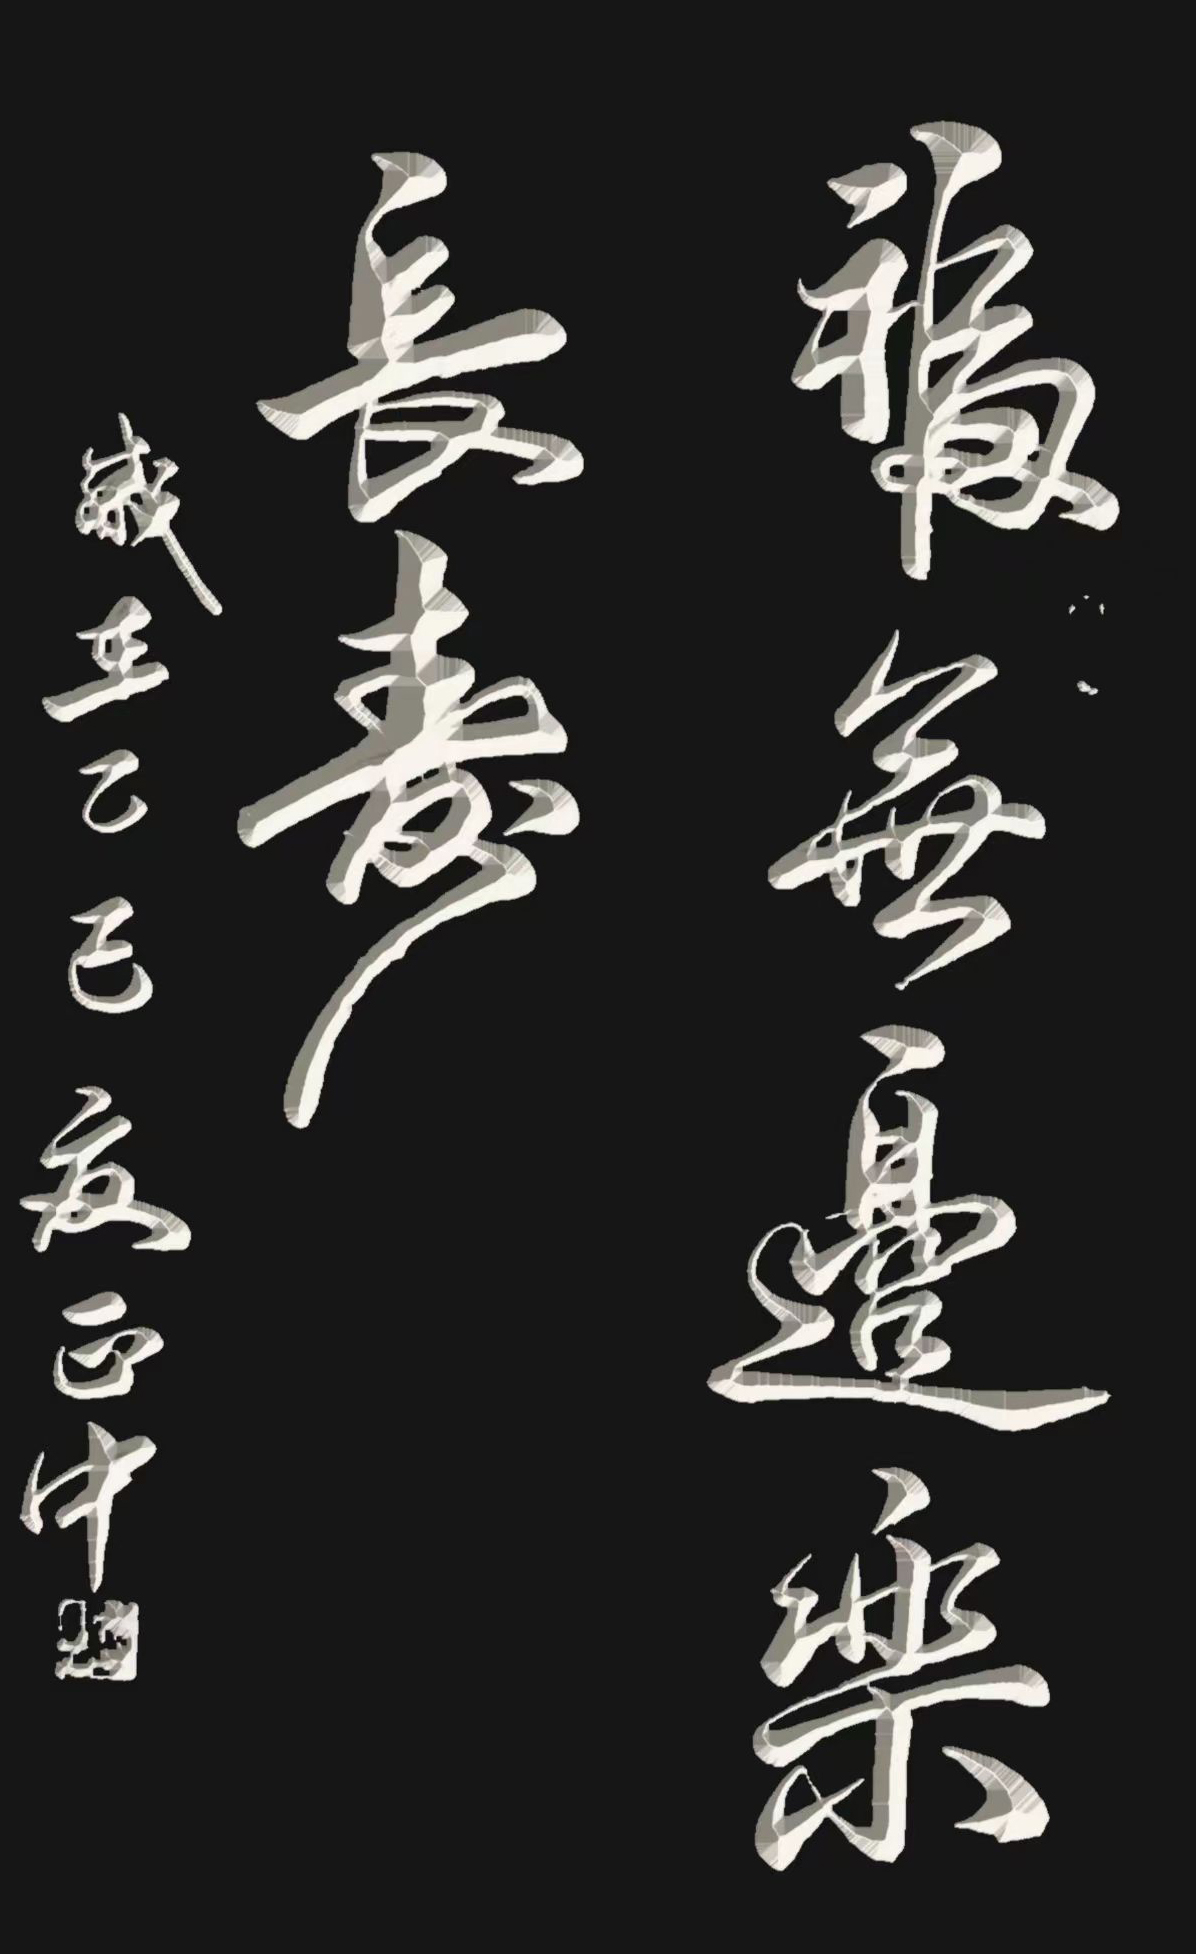 福無邊樂
長壽
歲在乙巳夏正中